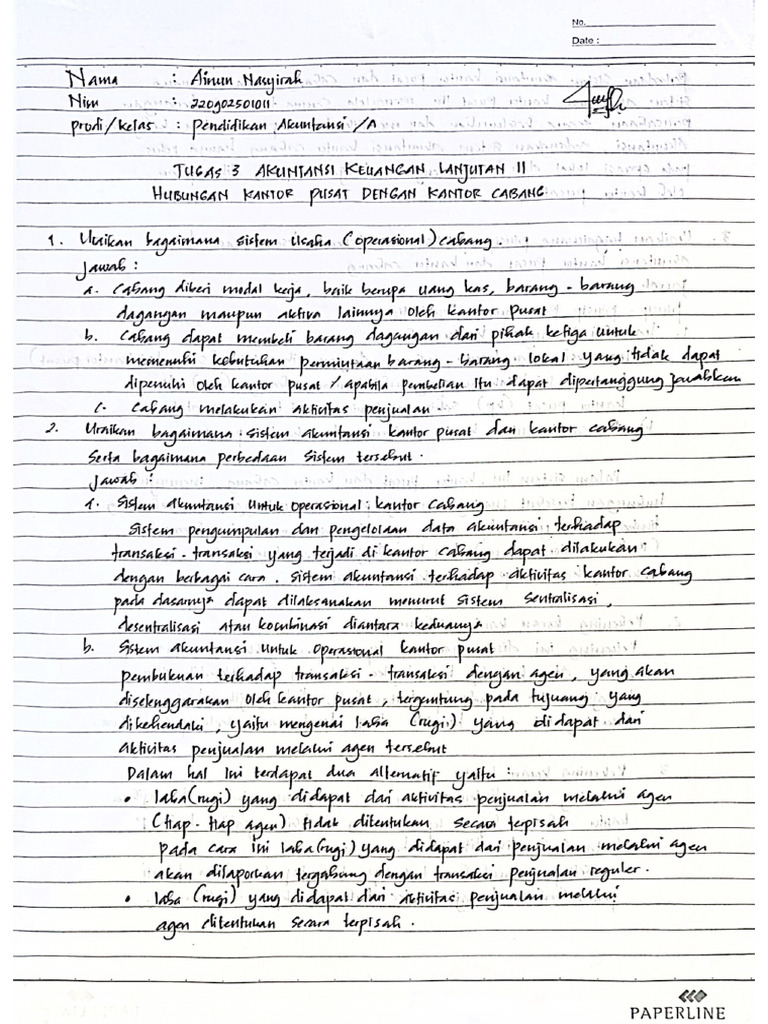 No.
Date :
Nama : Ainun Nasyirah
Nim : 220902501011
prodi/kelas : Pendidikan Akuntansi /A
TUGAS 3 AKUNTANSI KEUANGAN LANJUTAN II
HUBUNGAN KANTOR PUSAT DENGAN KANTOR CABANG
1. Uraikan bagaimana sistem usaha (operasional) cabang.
Jawab :
a. Cabang diberi modal kerja, baik berupa uang kas, barang - barang
dagangan maupun aktiva lainnya oleh kantor pusat
b. Cabang dapat membeli barang dagangan dari pihak ketiga untuk
memenuhi kebutuhan permintaan barang - barang lokal yang tidak dapat
dipenuhi oleh kantor pusat / apabila pembelian itu dapat dipertanggung jawabkan
c. Cabang melakukan aktivitas penjualan.
2. Uraikan bagaimana sistem akuntansi kantor pusat dan kantor cabang
serta bagaimana perbedaan sistem tersebut.
Jawab :
a. Sistem akuntansi untuk operasional kantor cabang
Sistem pengumpulan dan pengelolaan data akuntansi terhadap
transaksi - transaksi yang terjadi di kantor cabang dapat dilakukan
dengan berbagai cara. Sistem akuntansi terhadap aktivitas kantor cabang
pada dasarnya dapat dilaksanakan menurut sistem sentralisasi,
desentralisasi atau kocubinasi diantara keduanya
b. Sistem akuntansi untuk operasional kantor pusat
pembukuan terhadap transaksi - transaksi dengan agen, yang akan
diselenggarakan oleh kantor pusat, tergantung pada tujuang yang
dikehendaki, yaitu mengenai laba (rugi) yang didapat dari
aktivitas penjualan melalui agen tersebut
Dalam hal ini terdapat dua alternatif yaitu :
• laba (rugi) yang didapat dari aktivitas penjualan melalui agen
(tiap - tiap agen) tidak ditentukan secara terpisah
pada cara ini laba (rugi) yang didapat dari penjualan melalui agen
akan dilaporkan tergabung dengan transaksi penjualan reguler.
• laba (rugi) yang didapat dari aktivitas penjualan melalui
agen ditentukan secara terpisah.
PAPERLINE